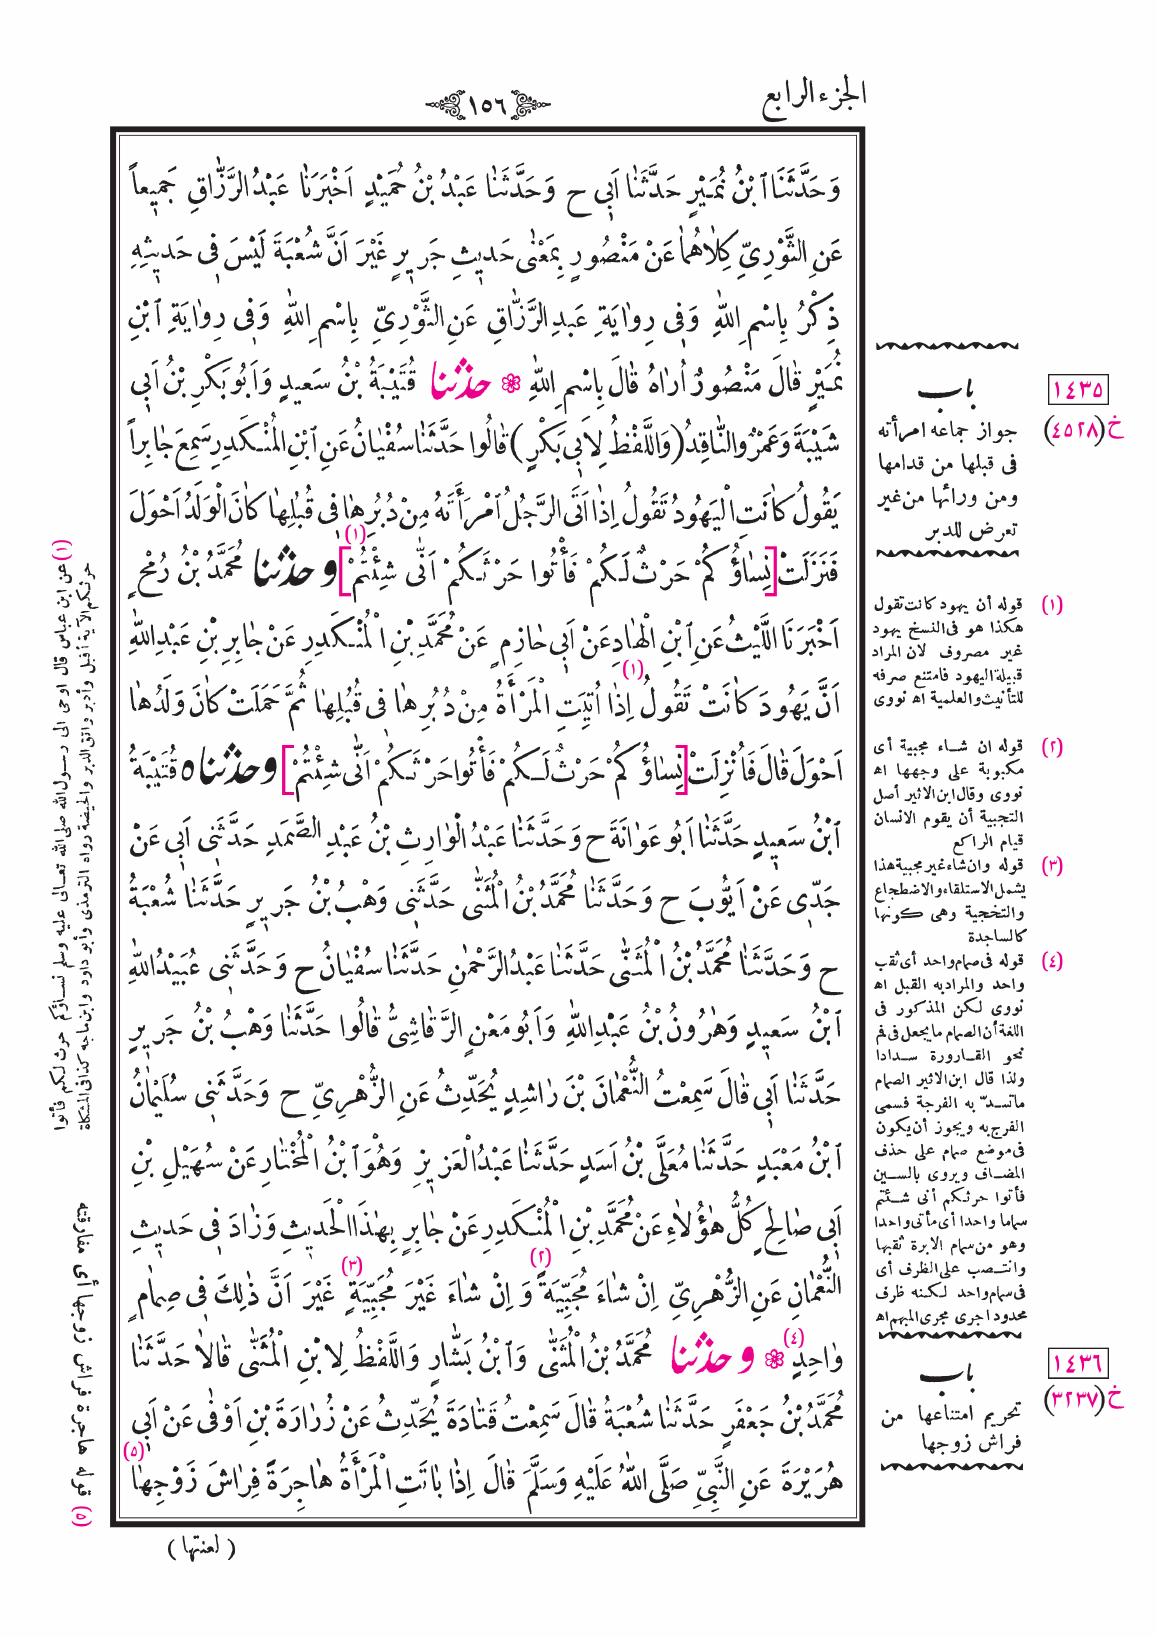 الجزء الرابع
١٥٦
وَحَدَّثَنَا ٱبْنُ نُمَيْرٍ حَدَّثَنٰا اَبٖى ح وَحَدَّثَنٰا عَبْدُ بْنُ حُمَيْدٍ اَخْبَرَنٰا عَبْدُ الرَّزّٰاقِ جَمٖيعاً
عَنِ الثَّوْرِىِّ كِلٰاهُمٰا عَنْ مَنْصُورٍ بِمَعْنٰى حَدٖيثِ جَرٖيرٍ غَيْرَ اَنَّ شُعْبَةَ لَيْسَ فٖى حَدٖيثِهِ
ذِكْرُ بِاسْمِ اللهِ وَفٖى رِوٰايَةِ عَبدِ الرَّزّٰاقِ عَنِ الثَّوْرِىِّ بِاسْمِ اللهِ وَفٖى رِوٰايَةِ ٱبْنِ
نُمَيْرٍ قٰالَ مَنْصُورٌ اُرٰاهُ قٰالَ بِاسْمِ اللهِ ❁ حدثنا قُتَيْبَةُ بْنُ سَعٖيدٍ وَاَبُو بَكْرِ بْنُ اَبٖى
شَيْبَةَ وَعَمْرٌو النّٰاقِدُ (وَاللَّفْظُ لِاَبٖى بَكْرٍ) قٰالُوا حَدَّثَنٰا سُفْيٰانُ عَنِ ٱبْنِ الْمُنْكَدِرِ سَمِعَ جٰابِراً
يَقُولُ كٰانَتِ الْيَهُودُ تَقُولُ اِذٰا اَتَى الرَّجُلُ ٱمْرَأَتَهُ مِنْ دُبُرِهٰا فٖى قُبُلِهٰا كٰانَ الْوَلَدُ اَحْوَلَ
فَنَزَلَتْ [نِسٰاؤُكُمْ حَرْثٌ لَكُمْ فَأْتُوا حَرْثَكُمْ اَنّٰى شِئْتُمْ] (١) وحدثنا مُحَمَّدُ بْنُ رُمْحٍ
اَخْبَرَنَا اللَّيْثُ عَنِ ٱبْنِ الْهٰادِ عَنْ اَبٖى حٰازِمٍ عَنْ مُحَمَّدِ بْنِ الْمُنْكَدِرِ عَنْ جٰابِرِ بْنِ عَبْدِ اللهِ
اَنَّ يَهُودَ كٰانَتْ تَقُولُ (١) اِذٰا اُتِيَتِ الْمَرْأَةُ مِنْ دُبُرِهٰا فٖى قُبُلِهٰا ثُمَّ حَمَلَتْ كٰانَ وَلَدُهٰا
اَحْوَلَ قٰالَ فَاُنْزِلَتْ [نِسٰاؤُكُمْ حَرْثٌ لَكُمْ فَأْتُوا حَرْثَكُمْ اَنّٰى شِئْتُمْ] وحدثناه قُتَيْبَةُ
ٱبْنُ سَعٖيدٍ حَدَّثَنٰا اَبُو عَوٰانَةَ ح وَحَدَّثَنٰا عَبْدُ الْوٰارِثِ بْنُ عَبْدِ الصَّمَدِ حَدَّثَنٖى اَبٖى عَنْ
جَدّٖى عَنْ اَيُّوبَ ح وَحَدَّثَنٰا مُحَمَّدُ بْنُ الْمُثَنّٰى حَدَّثَنٖى وَهْبُ بْنُ جَرٖيرٍ حَدَّثَنٰا شُعْبَةُ
ح وَحَدَّثَنٰا مُحَمَّدُ بْنُ الْمُثَنّٰى حَدَّثَنٰا عَبْدُ الرَّحْمٰنِ حَدَّثَنٰا سُفْيٰانُ ح وَحَدَّثَنٖى عُبَيْدُ اللهِ
ٱبْنُ سَعٖيدٍ وَهٰرُونُ بْنُ عَبْدِ اللهِ وَاَبُو مَعْنٍ الرَّقٰاشِىُّ قٰالُوا حَدَّثَنٰا وَهْبُ بْنُ جَرٖيرٍ
حَدَّثَنٰا اَبٖى قٰالَ سَمِعْتُ النُّعْمٰانَ بْنَ رٰاشِدٍ يُحَدِّثُ عَنِ الزُّهْرِىِّ ح وَحَدَّثَنٖى سُلَيْمٰانُ
ٱبْنُ مَعْبَدٍ حَدَّثَنٰا مُعَلَّى بْنُ اَسَدٍ حَدَّثَنٰا عَبْدُ الْعَزٖيزِ وَهُوَ ٱبْنُ الْمُخْتٰارِ عَنْ سُهَيْلِ بْنِ
اَبٖى صٰالِحٍ كُلُّ هٰؤُلٰاءِ عَنْ مُحَمَّدِ بْنِ الْمُنْكَدِرِ عَنْ جٰابِرٍ بِهٰذَا الْحَدٖيثِ وَزٰادَ فٖى حَدٖيثِ
النُّعْمٰانِ عَنِ الزُّهْرِىِّ اِنْ شٰاءَ مُجَبِّيَةً (٢) وَاِنْ شٰاءَ غَيْرَ مُجَبِّيَةٍ (٣) غَيْرَ اَنَّ ذٰلِكَ فٖى صِمٰامٍ
وٰاحِدٍ (٤) ❁ وحدثنا مُحَمَّدُ بْنُ الْمُثَنّٰى وَٱبْنُ بَشّٰارٍ وَاللَّفْظُ لِابْنِ الْمُثَنّٰى قٰالٰا حَدَّثَنٰا
مُحَمَّدُ بْنُ جَعْفَرٍ حَدَّثَنٰا شُعْبَةُ قٰالَ سَمِعْتُ قَتٰادَةَ يُحَدِّثُ عَنْ زُرٰارَةَ بْنِ اَوْفٰى عَنْ اَبٖى
هُرَيْرَةَ عَنِ النَّبِىِّ صَلَّى اللهُ عَلَيْهِ وَسَلَّمَ قٰالَ اِذٰا بٰاتَتِ الْمَرْأَةُ هٰاجِرَةً فِرٰاشَ زَوْجِهٰا (٥)
( لعنتها )
١٤٣٥
خ (٤٥٢٨)
باب
جواز جماعه امرأته
فى قبلها من قدامها
ومن ورائها من غير
تعرض للدبر
(١) قوله أن يهود كانت تقول
هكذا هو فى النسخ يهود
غير مصروف لان المراد
قبيلة اليهود فامتنع صرفه
للتأنيث والعلمية اه نووى
(٢) قوله ان شاء مجبية أى
مكبوبة على وجهها اه
نووى وقال ابن الاثير أصل
التجبية أن يقوم الانسان
قيام الراكع
(٣) قوله وان شاء غير مجبية هذا
يشمل الاستلقاء والاضطجاع
والتخجية وهى كونها
كالساجدة
(٤) قوله فى صمام واحد أى ثقب
واحد والمراد به القبل اه
نووى لكن المذكور فى
اللغة أن الصمام ما يجعل فى فم
نحو القارورة سدادا
ولذا قال ابن الاثير الصمام
ما تسدّ به الفرجة فسمى
الفرج به ويجوز أن يكون
فى موضع صمام على حذف
المضاف ويروى بالسين
فأتوا حرثكم أنى شئتم
سماما واحدا أى مأتى واحدا
وهو من سمام الابرة ثقبها
وانتصب على الظرف أى
فى سمام واحد لكنه ظرف
محدود اجرى مجرى المبهم اه
١٤٣٦
خ (٣٢٣٧)
باب
تحريم امتناعها من
فراش زوجها
(١) عن ابن عباس قال اوحى الى رسول الله صلى الله تعالى عليه وسلم نساؤكم حرث لكم فأتوا
حرثكم الآية أقبل وأدبر واتق الدبر والحيضة رواه الترمذى وأبو داود وابن ماجه كذا فى المشكاة
(٥) قوله هاجرة فراش زوجها أى مفارقته